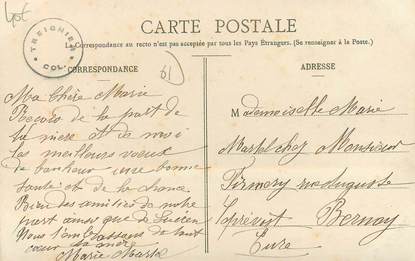 Lyot
TREIGNIER
COL.
CARTE POSTALE
La Correspondance au recto n'est pas acceptée par tous les Pays Étrangers. (Se renseigner à la Poste.)
CORRESPONDANCE
ADRESSE
61
Ma Chère Marie
Recois de la part de
ta mere et de moi
les meilleurs voeux
de bonheur une bonne
santé et de la chance
Bien des amitiés de notre
part ainsi que de Lucien
Nous t'embrassons de tout
coeur ta mère
Marie Martel
Mademoiselle Marie
Martel chez Monsieur
Firmery rue Auguste
Leprévost Bernay
Eure